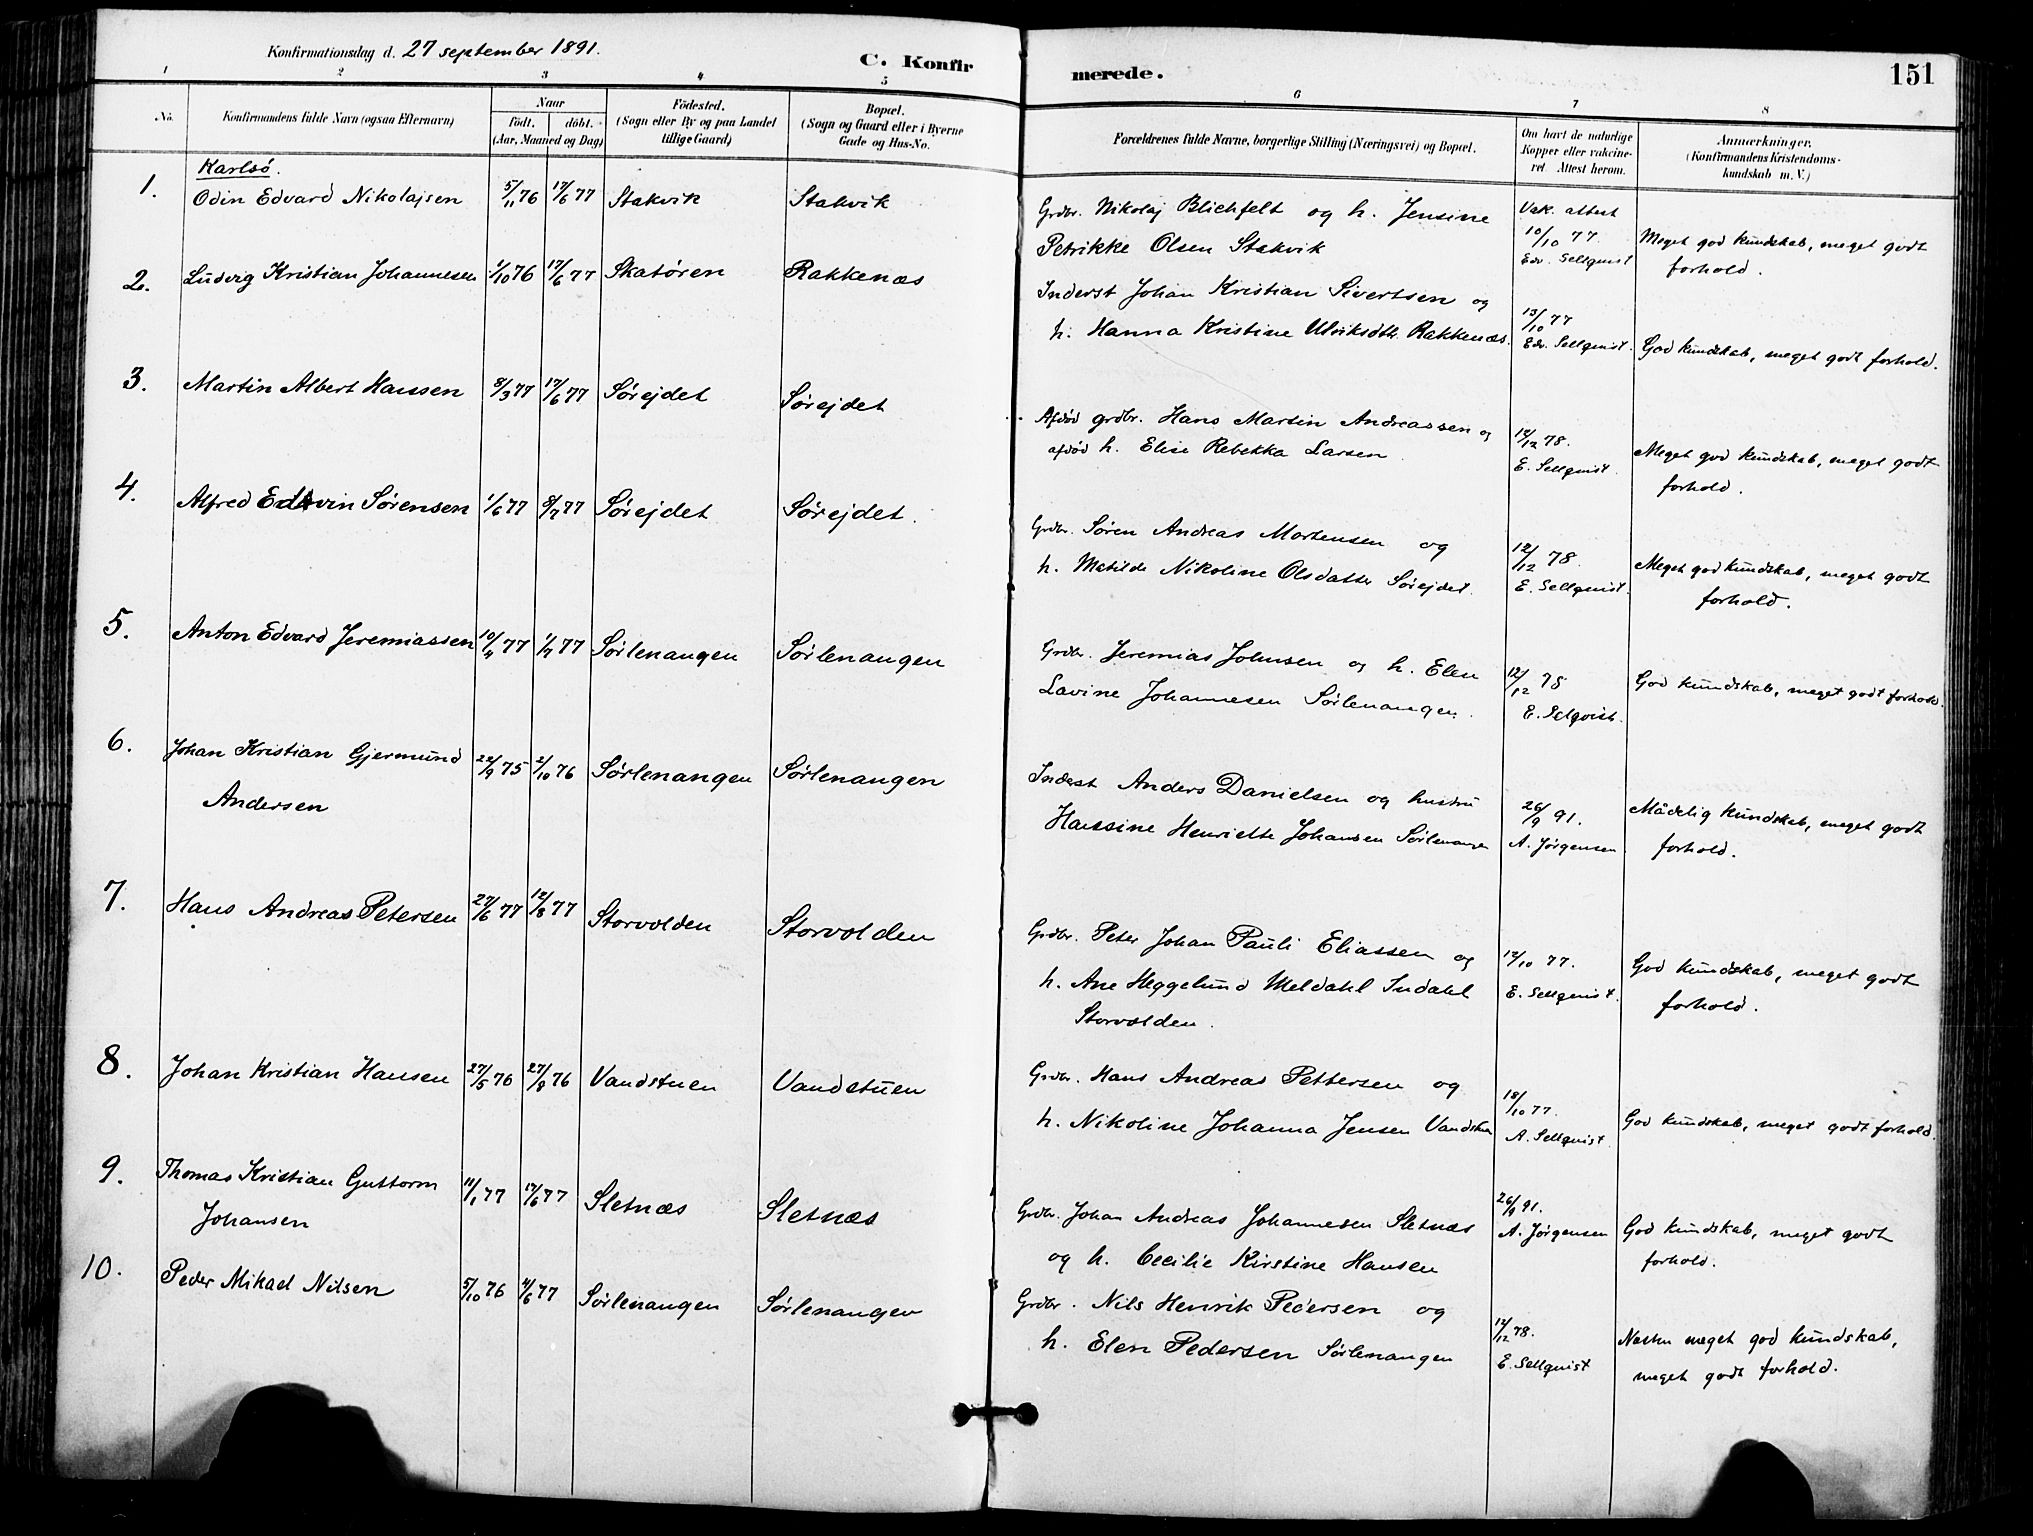 Konfirmationsdag d. 27 september 1891.
C. Konfirmerede.
151
1 2 3 4 5 6 7 8
No.
Konfirmandens fulde Navn (ogsaa Efternavn)
Naar
Födt. döbt.
(Aar, Maaned og Dag)
Födested.
(Sogn eller By og paa Landet
tillige Gaard)
Bopæl.
(Sogn og Gaard eller i Byerne
Gade og Hus-No.
Forældrenes fulde Navne, borgerlige Stilling (Næringsvei) og Bopæl.
Om havt de naturlige
Kopper eller vakcine-
ret. Attest herom.
Anmærkninger.
(Konfirmandens Kristendoms-
kundskab m. V.)
Karlsø.
1. Odin Edvard Nikolajsen 5/11 76 17/6 77 Stakvik Stakvik
Grdbr. Nikolaj Blichfelt og h. Jensine
Petrikke Olsen Stakvik
Vak. attest
10/10 77.
Edv. Sellqvist
Meget god kundskab, meget godt
forhold.
2. Ludvig Kristian Johannesen 1/10 76 17/6 77 Skatøren Rakkenæs
Inderst Johan Kristian Sivertsen og
h. Hanna Kristine Ulriksdtr. Rakkenæs.
13/10 77
Edv. Sellqvist.
God kundskab, meget godt forhold.
3. Martin Albert Hanssen 8/3 77 17/6 77 Sørejdet Sørejdet
Afdød grdbr. Hans Martin Andreassen og
afdød h. Elise Rebekka Larsen.
12/12 78.
E. Sellqvist.
Meget god kundskab, meget godt
forhold.
4. Alfred Edvin Sørensen 1/6 77 8/7 77 Sørejdet Sørejdet.
Grdbr. Søren Andreas Mortensen og
h. Matilde Nikoline Olsdatter Sørejdet.
12/12 78.
E. Sellqvist.
Meget god kundskab, meget godt
forhold.
5. Anton Edvard Jeremiassen 10/4 77 1/7 77 Sørlenangen Sørlenangen
Grdbr. Jeremias Johnsen og h. Elen
Lavine Johannesen Sørlenangen.
12/12 78
E. Selqvist.
God kundskab, meget godt forhold.
6. Johan Kristian Gjermund 22/9 75 2/10 76 Sørlenangen Sørlenangen
Andersen
Inderst Anders Danielsen og hustru
Hanssine Henriette Johansen Sørlenangen
26/9 91.
A. Jørgensen
Mådelig kundskab, meget godt
forhold.
7. Hans Andreas Petersen 27/6 77 12/8 77 Storvolden Storvolden
Grdbr. Peter Johan Pauli Eliassen og
h. Ane Heggelund Meldahl Indahl
Storvolden.
12/10 77.
E. Sellqvist.
God kundskab, meget godt
forhold.
8. Johan Kristian Hansen 27/5 76 27/8 76 Vandstuen Vandstuen
Grdbr. Hans Andreas Pettersen og
h. Nikoline Johanna Jensen Vandstuen
18/10 77.
A. Sellqvist.
God kundskab, meget godt forhold.
9. Thomas Kristian Guttorm 11/1 77 17/6 77 Sletnæs Sletnæs
Johansen
Grdbr. Johan Andreas Johannesen Sletnæs
og h. Cecilie Kirstine Hansen
26/9 91.
A. Jørgensen
God kundskab, meget godt
forhold.
10. Peder Mikael Nilsen 5/10 76 4/6 77 Sørlenangen Sørlenangen
Grdbr. Nils Henrik Pedersen og
h. Elen Pedersen Sørlenangen
12/12 78.
E. Sellqvist
Næsten meget god kundskab,
meget godt forhold.